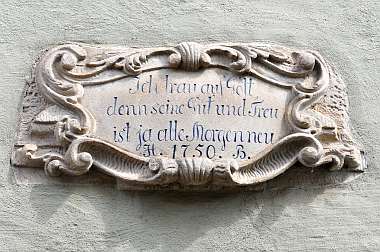 Ich trau auf Gott
denn seine Güt und Treu
ist ja alle Morgen neu
H. 1750. B.